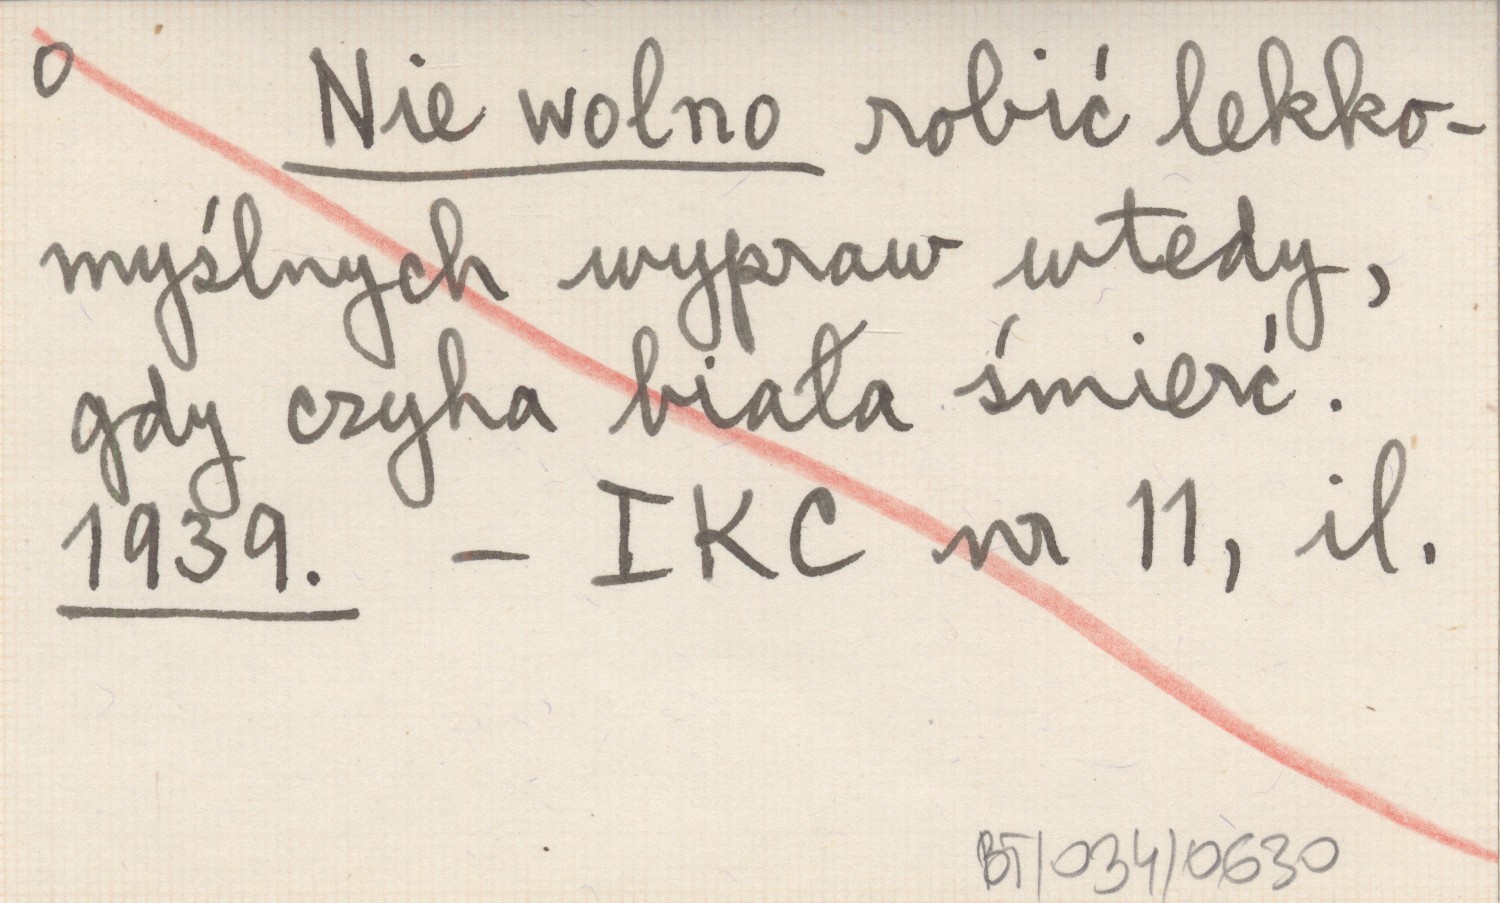 o Nie wolno robić lekko-
myślnych wypraw wtedy,
gdy czyha biała śmierć.
1939. – IKC nr 11, il.
BT/034/0630